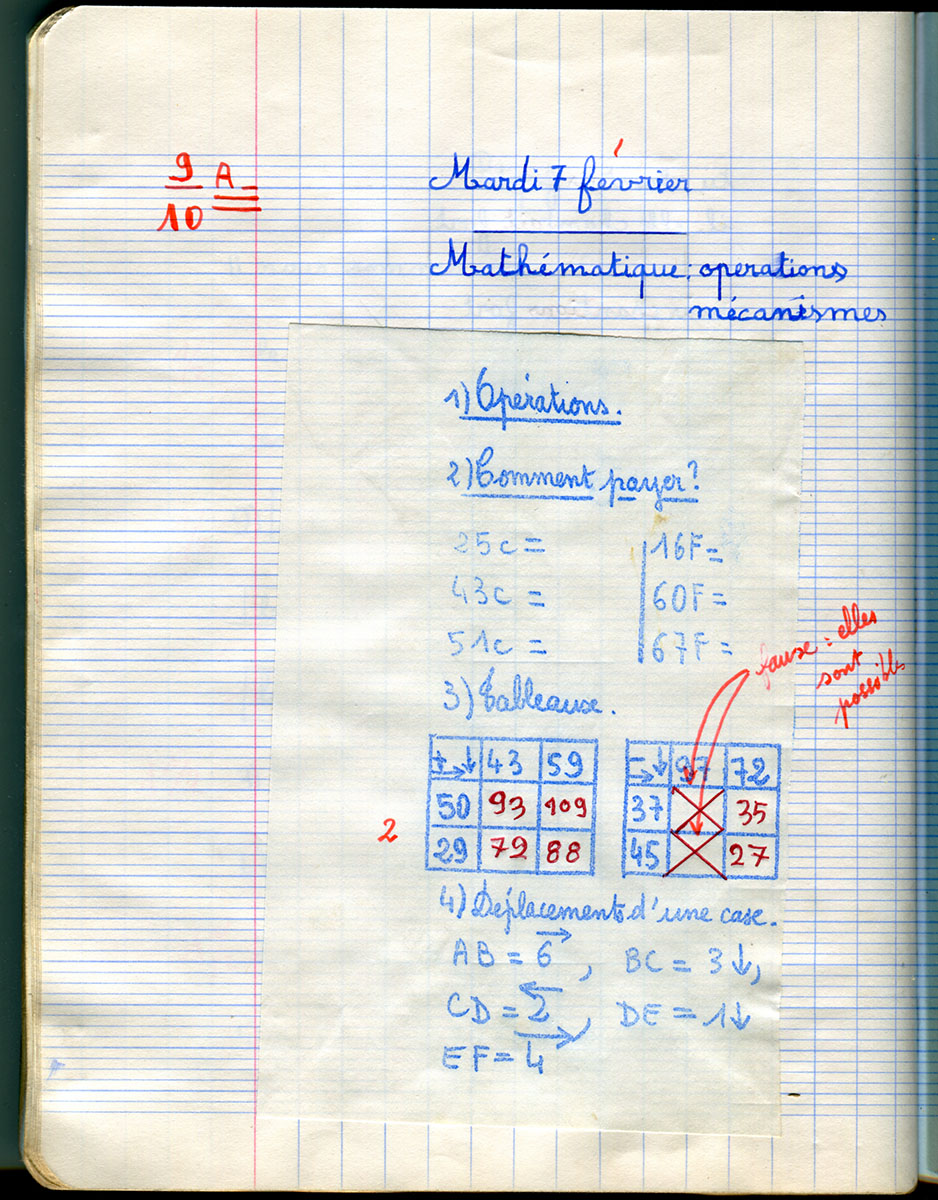 9 A
10
Mardi 7 février
Mathématique : operations
mécanismes
1) Opérations.
2) Comment payer?
25c = 16F=
43c = 60F=
51c = 67F=
fause : elles
sont
possibles
3) Tableaux.
+ 43 59
50 93 109
29 72 88
- 72
37 35
45 27
2
4) Déplacements d'une case.
AB = 6→, BC = 3↓,
CD = 2←, DE = 1↓
EF = 4→